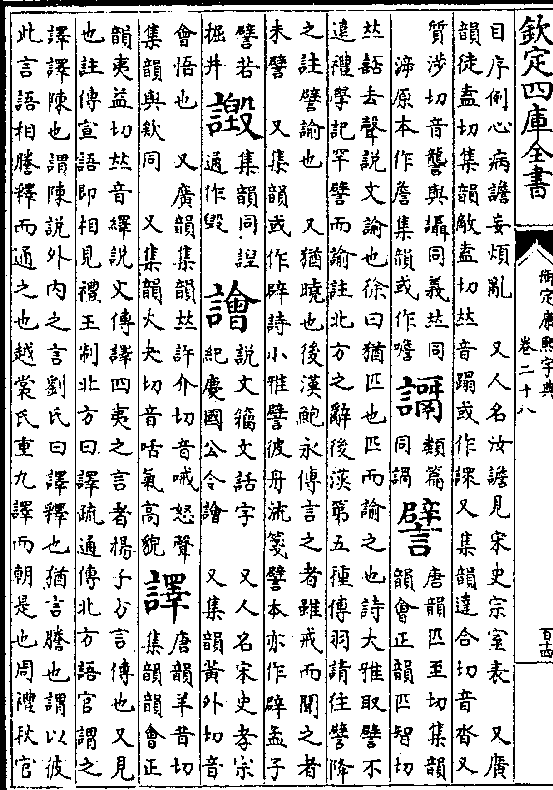 欽定四庫全書
御定康熙字典
卷二十八
目序例心病譫妄煩亂 又人名汝譫見宋史宗室表 又廣
韻徒盍切集韻敵盍切𠀤音蹋或作䜚又集韻達合切音沓又
質涉切音讋與讘同義𠀤同
諦原本作詹集韻或作噡
類篇
同謫
譬
唐韻匹至切集韻
韻會正韻匹智切
𠀤詖去聲說文諭也徐曰猶匹也匹而諭之也詩大雅取譬不
遠禮學記罕譬而喻註北方之辭後漢第五種傳羽請往譬降
之註譬諭也 又猶曉也後漢鮑永傳言之者雖戒而聞之者
未譬 又集韻或作辟詩小雅譬彼舟流箋譬本亦作辟孟子
譬若
掘井
譭
集韻同諻
通作毀
譮
說文籀文話字 又人名宋史孝宗
紀慶國公令譮 又集韻黃外切音
會悟也 又廣韻集韻𠀤許介切音喊怒聲
集韻與欸同 又集韻火夬切音咶氣高貌
譯
唐韻羊昔切
集韻韻會正
韻夷益切𠀤音繹說文傳譯四夷之言者揚子方言傳也又見
也註傳宣語即相見禮王制北方曰譯疏通傳北方語官謂之
譯譯陳也謂陳說外内之言劉氏曰譯釋也猶言謄也謂以彼
此言語相謄釋而通之也越裳氏重九譯而朝是也周禮秋官